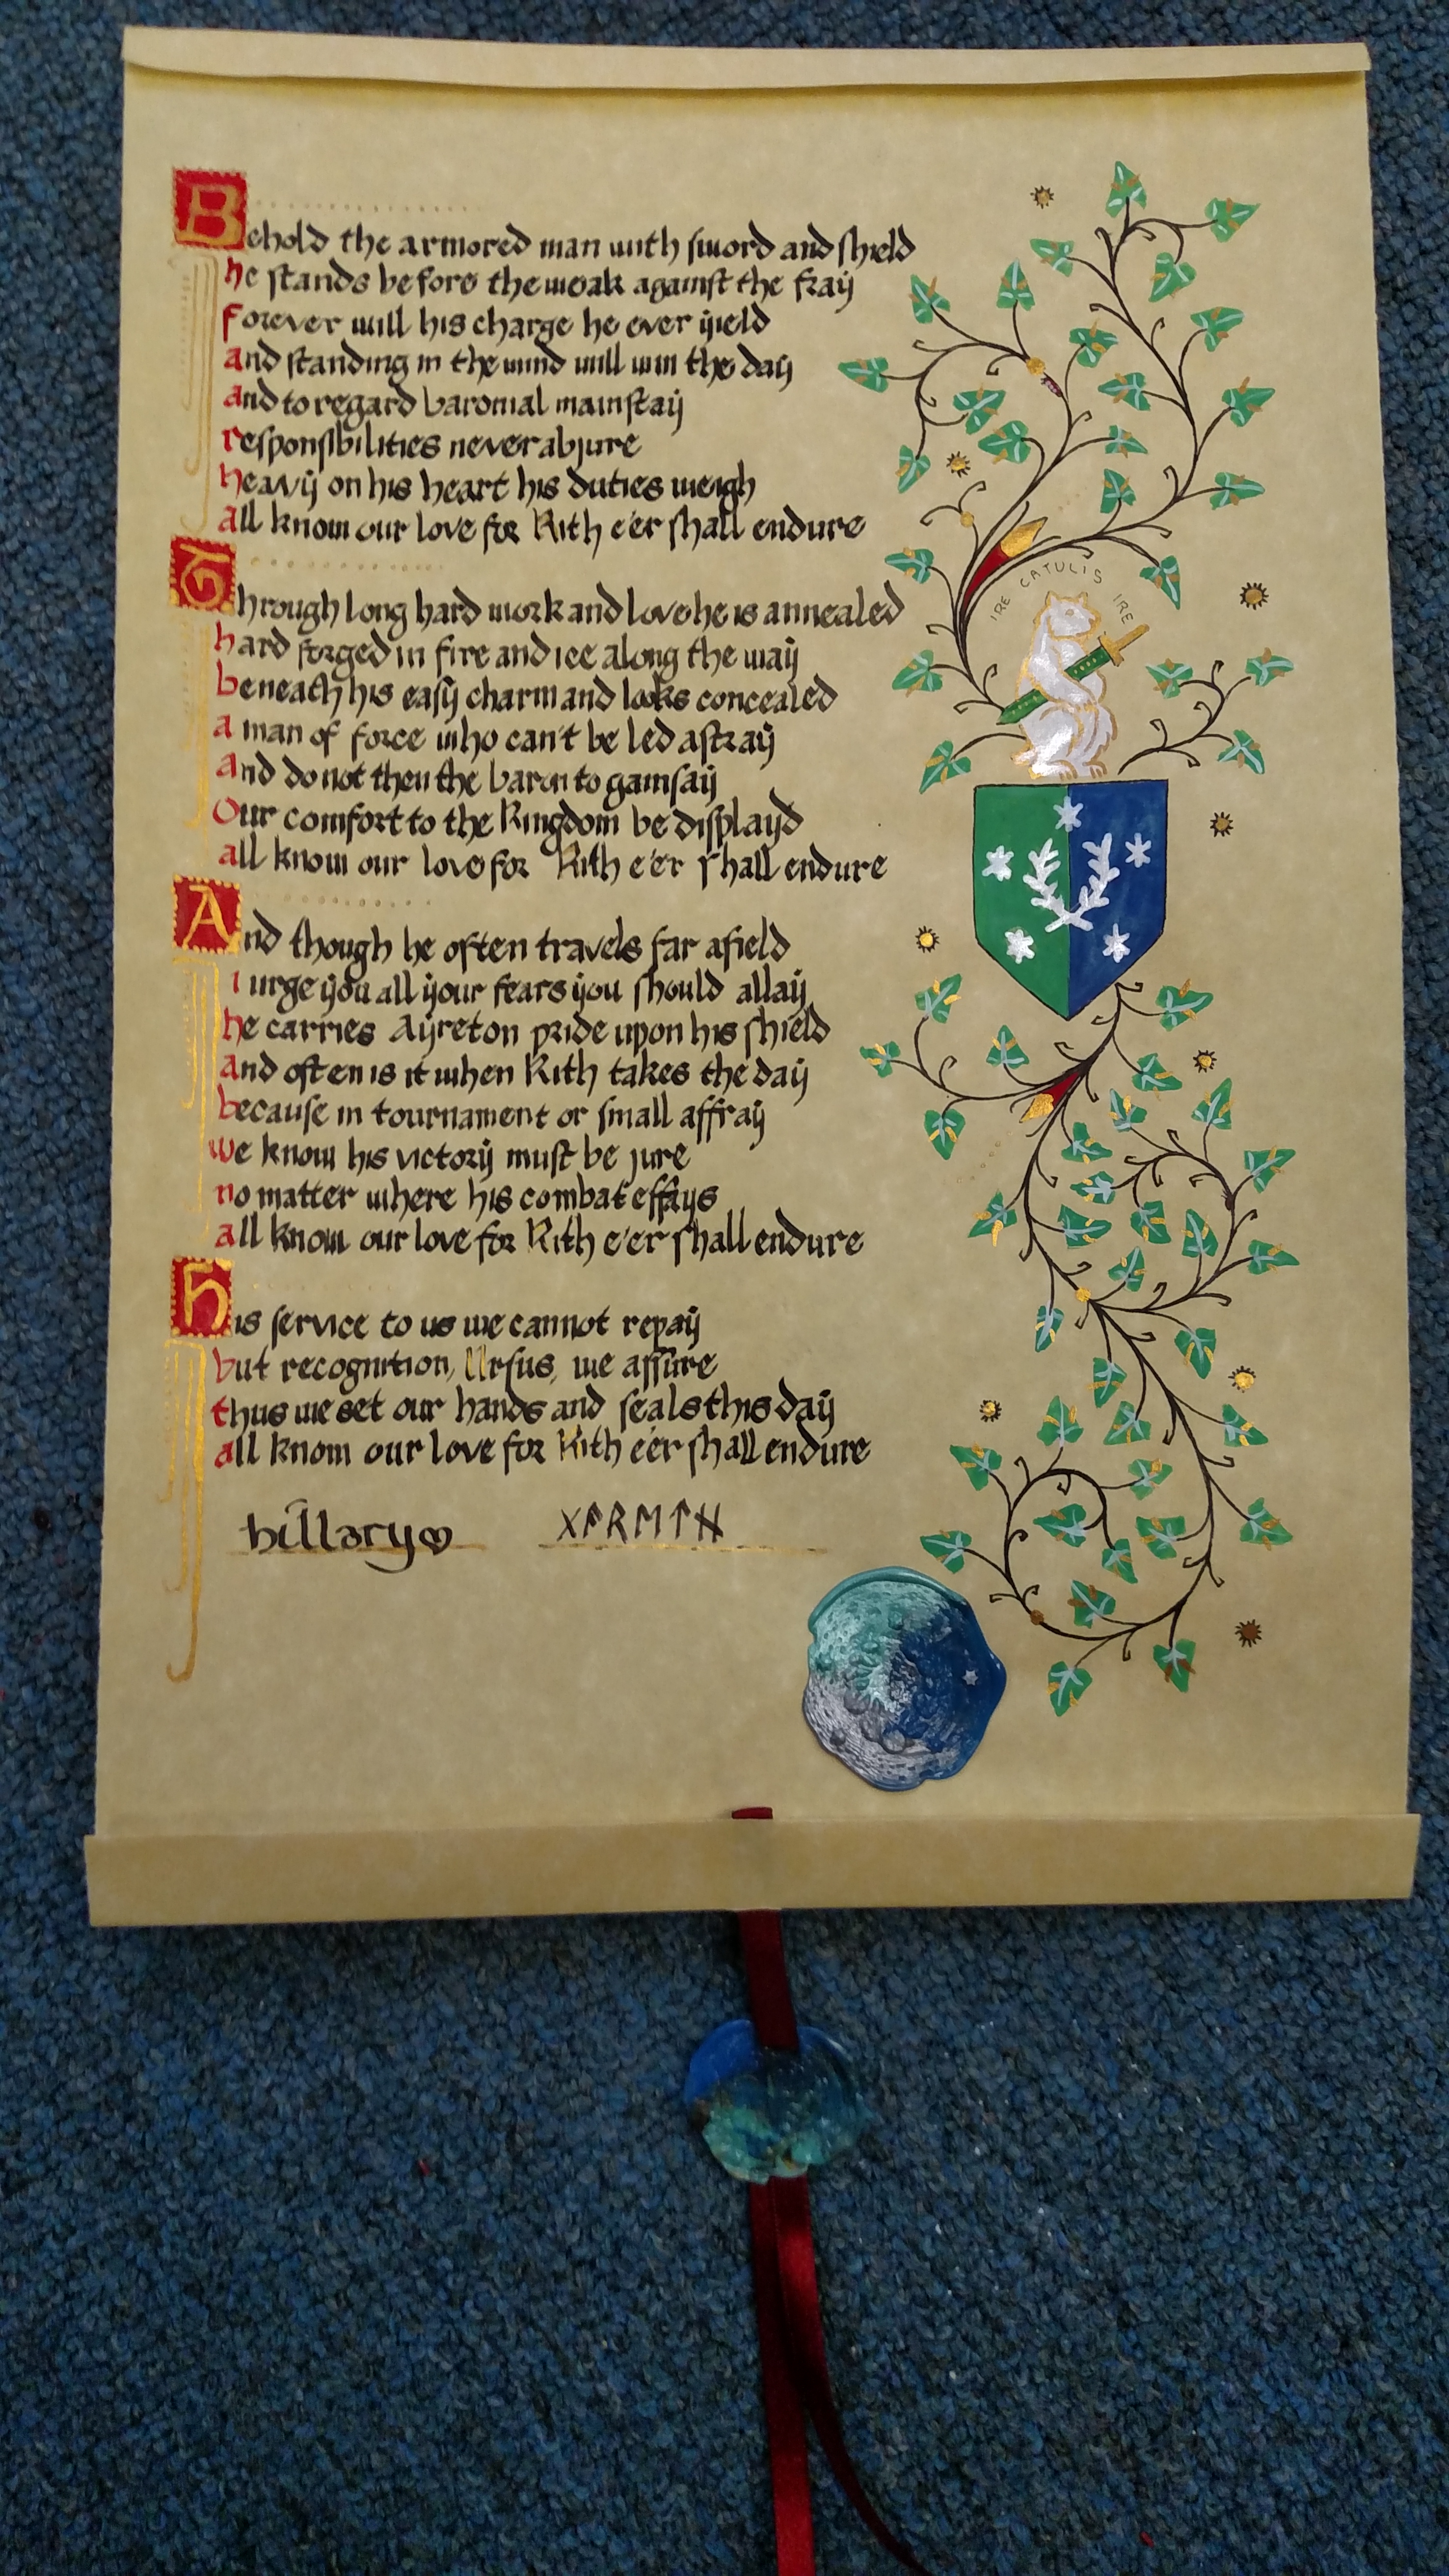 Behold the armored man with sword and shield
he stands before the weak against the fray
forever will his charge he ever yield
and standing in the wind will win the day
and to regard baronial mainstay
responsibilities never abjure
heavy on his heart his duties weigh
all know our love for Kith e'er shall endure
Through long hard work and love he is annealed
hard forged in fire and ice along the way
beneath his easy charm and looks concealed
a man of force who can't be led astray
and do not then the baron to gainsay
Our comfort to the Kingdom be displayd
all know our love for Kith e'er shall endure
And though he often travels far afield
i urge you all your fears you should allay
he carries Ayreton pride upon his shield
and often is it when Kith takes the day
because in tournament or small affray
we know his victory must be sure
no matter where his combat effays
all know our love for Kith e'er shall endure
His service to us we cannot repay
but recognition, Ursus, we assure
thus we set our hands and seals this day
all know our love for Kith e'er shall endure
hillary
ᚷᚨᚱᛖᛏᚺ
IRE CATULIS IRE